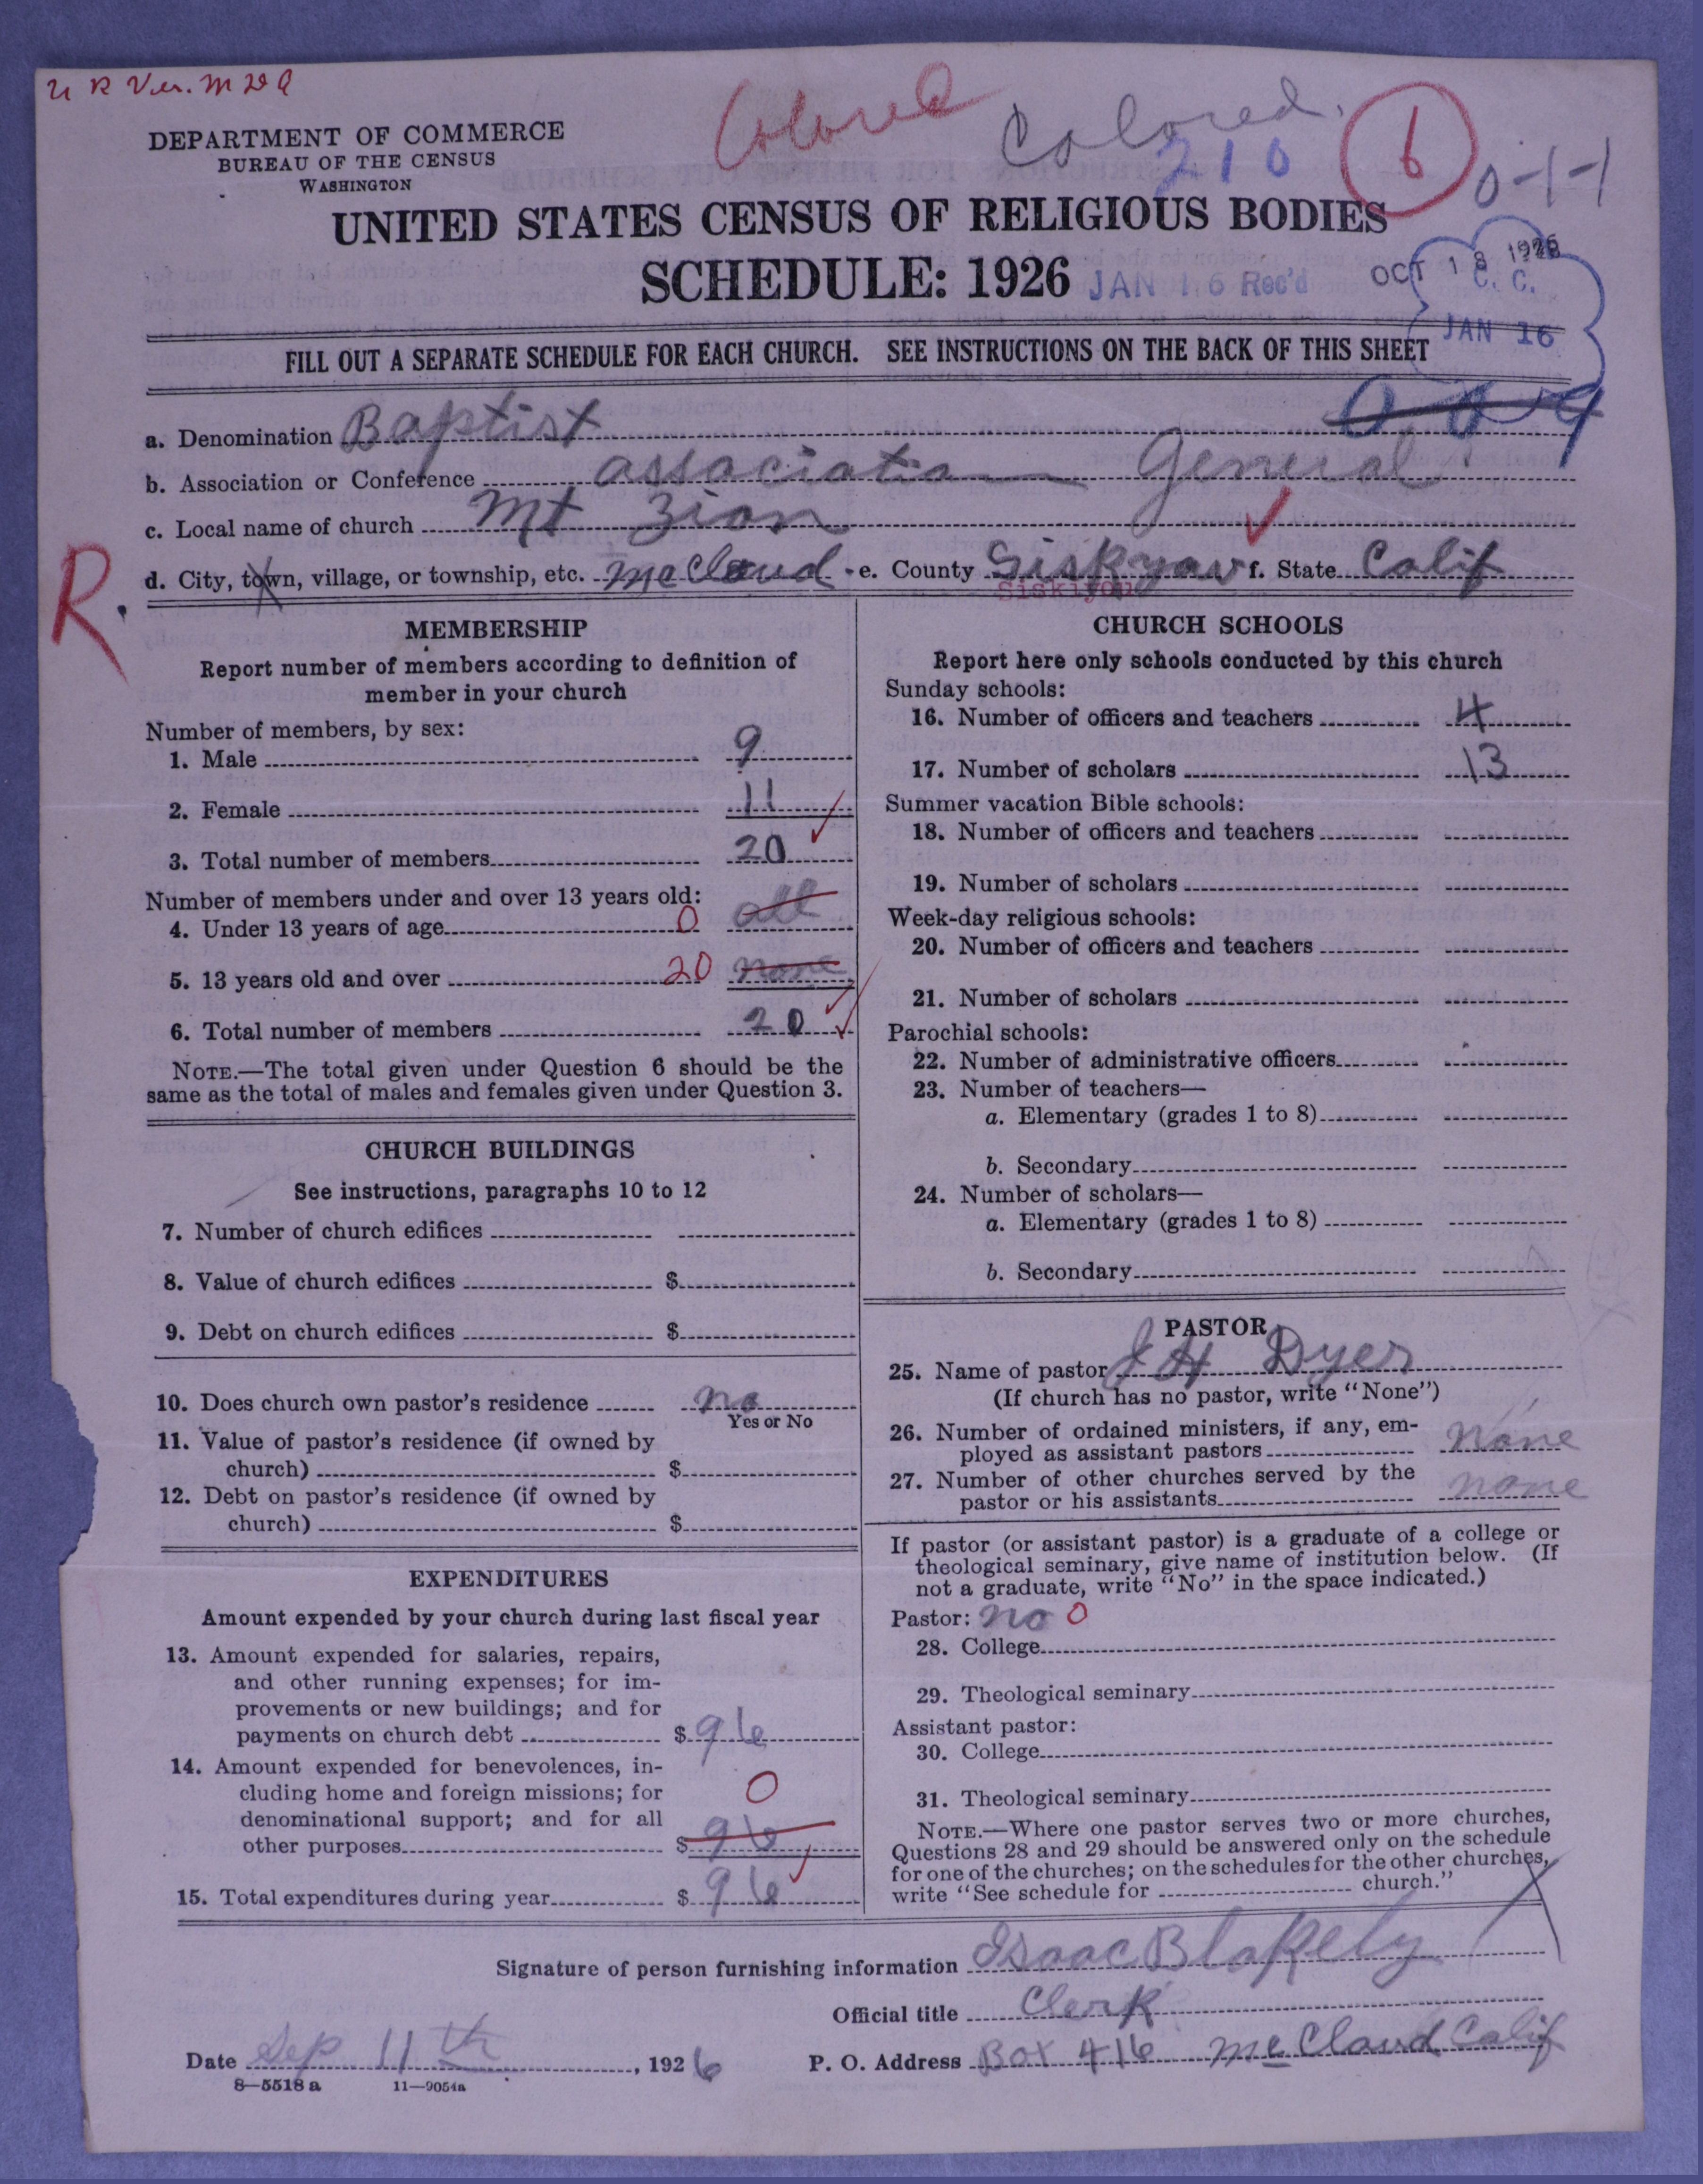 U R Ver. M D Q
Colored
Colored.
210
6
0-1-1
DEPARTMENT OF COMMERCE
BUREAU OF THE CENSUS
WASHINGTON
UNITED STATES CENSUS OF RELIGIOUS BODIES
SCHEDULE: 1926
JAN 16 Rec'd
OCT 18 1926
C. C.
JAN 16
FILL OUT A SEPARATE SCHEDULE FOR EACH CHURCH. SEE INSTRUCTIONS ON THE BACK OF THIS SHEET
a. Denomination Baptist
b. Association or Conference association General
c. Local name of church Mt Zion
d. City, town, village, or township, etc. McCloud e. County Siskyou f. State Calif
Siskiyou
R.
MEMBERSHIP
Report number of members according to definition of
member in your church
Number of members, by sex:
1. Male 9
2. Female 11
3. Total number of members 20
Number of members under and over 13 years old:
4. Under 13 years of age 0 all
5. 13 years old and over 20 none
6. Total number of members 20
NOTE.—The total given under Question 6 should be the
same as the total of males and females given under Question 3.
CHURCH BUILDINGS
See instructions, paragraphs 10 to 12
7. Number of church edifices
8. Value of church edifices $
9. Debt on church edifices $
10. Does church own pastor's residence no
Yes or No
11. Value of pastor's residence (if owned by
church) $
12. Debt on pastor's residence (if owned by
church) $
EXPENDITURES
Amount expended by your church during last fiscal year
13. Amount expended for salaries, repairs,
and other running expenses; for im-
provements or new buildings; and for
payments on church debt $ 96
14. Amount expended for benevolences, in-
cluding home and foreign missions; for
0
denominational support; and for all
other purposes $ 96
15. Total expenditures during year $ 96
CHURCH SCHOOLS
Report here only schools conducted by this church
Sunday schools:
16. Number of officers and teachers 4
17. Number of scholars 13
Summer vacation Bible schools:
18. Number of officers and teachers
19. Number of scholars
Week-day religious schools:
20. Number of officers and teachers
21. Number of scholars
Parochial schools:
22. Number of administrative officers
23. Number of teachers—
a. Elementary (grades 1 to 8)
b. Secondary
24. Number of scholars—
a. Elementary (grades 1 to 8)
b. Secondary
PASTOR
25. Name of pastor J H Dyer
(If church has no pastor, write "None")
26. Number of ordained ministers, if any, em-
ployed as assistant pastors None
27. Number of other churches served by the
pastor or his assistants none
If pastor (or assistant pastor) is a graduate of a college or
theological seminary, give name of institution below. (If
not a graduate, write "No" in the space indicated.)
Pastor: no 0
28. College
29. Theological seminary
Assistant pastor:
30. College
31. Theological seminary
NOTE.—Where one pastor serves two or more churches,
Questions 28 and 29 should be answered only on the schedule
for one of the churches; on the schedules for the other churches,
write "See schedule for church."
Signature of person furnishing information Isaac Blakely
Official title Clerk
Date Sep 11th, 1926 P. O. Address Box 416 McCloud Calif
8—5518 a 11—9054a